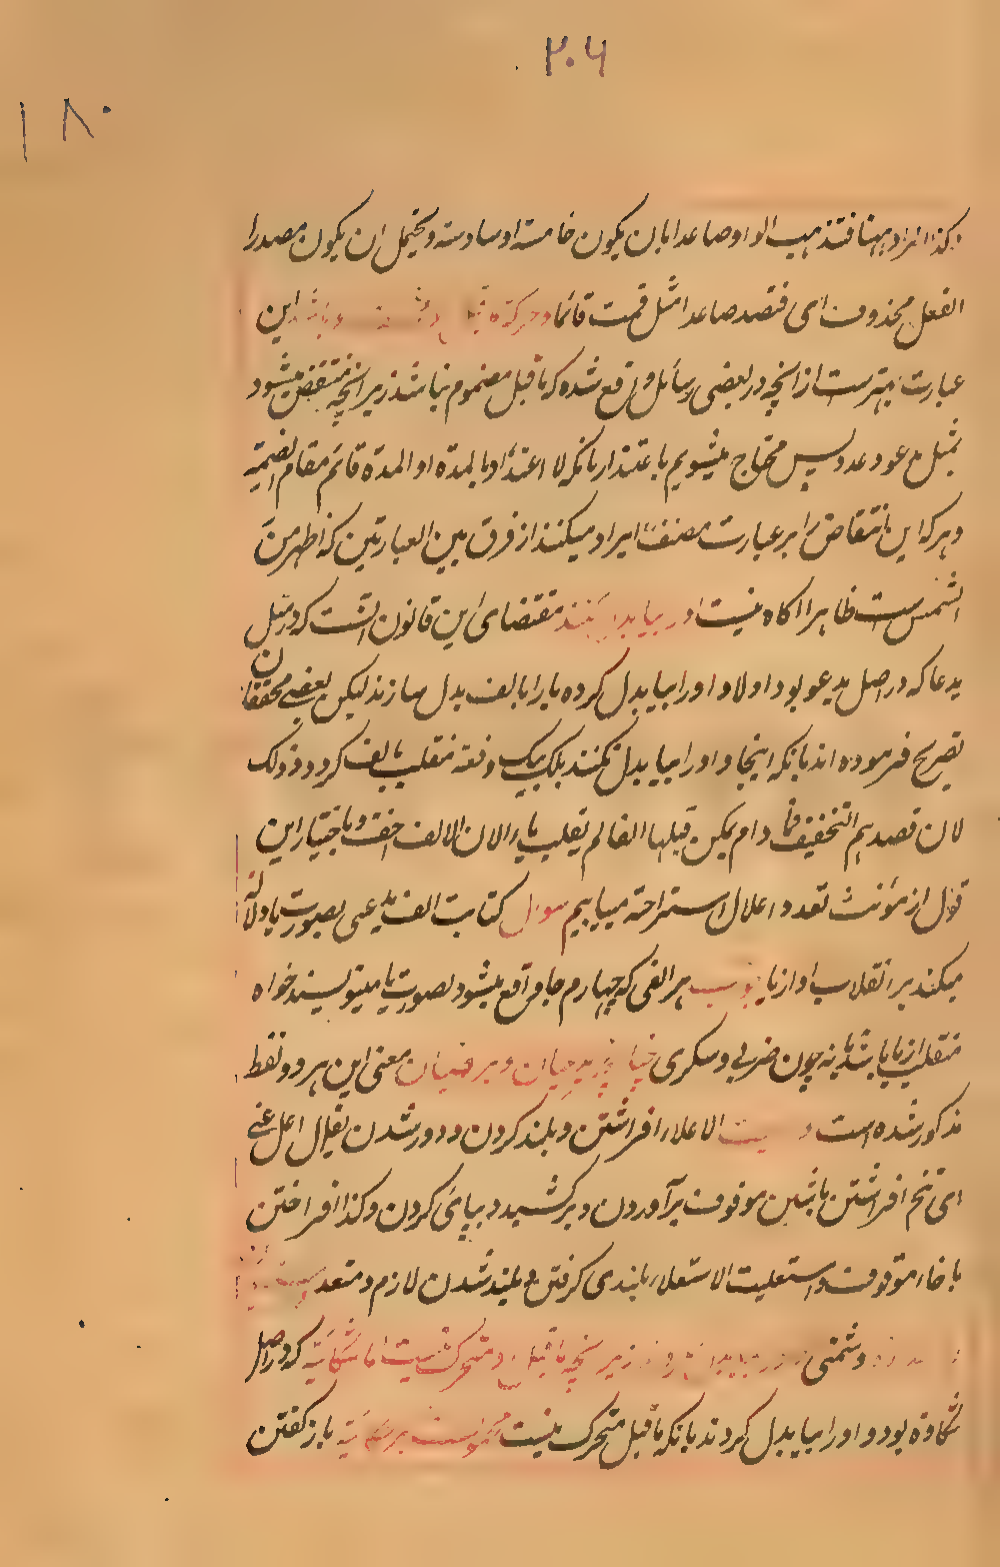 ۲۰۶
۱۸۰
وکذا المراد ههنا فتذهب الواو صاعدا بان یکون خامسة او سادسة و یحتمل ان یکون مصدرا
الفعل محذوف ای فتصعد صاعدا مثل قمت قائما و حرکة این
عبارت بهترست از انچه در بعضی رسائل واقع شده که ماقبل مضموم نباشد زیرانچه منتقض میشود
بمثل مدعو و عدو پس محتاج میشویم باعتذار بانکه لا اعتداد بالمدة او المدة قائم مقام الضمة
و هر که این انتقاض را بر عبارت مصنف ایراد میکند از فرق بین العبارتین که اظهر من
الشمس ست ظاهرا اگاه نیست او را بیا بدل کنند مقتضای این قانون انست که در مثل
یدعا که در اصل یدعو بود اولا واو را بیا بدل کرده یا را بالف بدل سازند لیکن بعضی محققان
تصریح فرموده اند بانکه اینجا واو را بیا بدل نکنند بلکه بیک دفعه منقلب بالف گردد و ذلک
لان قصدهم التخفیف فما دام یمکن قبلها الفا لم تقلب یاء الان الالف اخف و باختیار این
قول از مؤنث تعدد اعلال استراحة مییابیم سوال کتابت الف یدعی بصورت یا دلالة
میکند بر انقلاب او از یا جواب هر الفی که چهارم جا واقع میشود بصورت یا مینویسند خواه
منقلب از یا باشد یا نه چون ضربی و سکری چنانچه یدعیان و یرضیان معنی این هر دو لفظ
مذکور شده است و الاعلاء افراشتن و بلند کردن و دور شدن یقال اعل عنی
ای تنح افراشتن بالشین موقوف برآوردن و برکشید و بپای کردن و کذا افراختن
با خاء موقوف و استعلیت الاستعلاء بلندی گرفتن و بلند شدن لازم و متعد
و شمنی زیرانچه ماقبل و متحرک نیست اما شکایة که در اصل
شکاوة بود واو را بیا بدل کردند بانکه ماقبل متحرک نیست بازگفتن